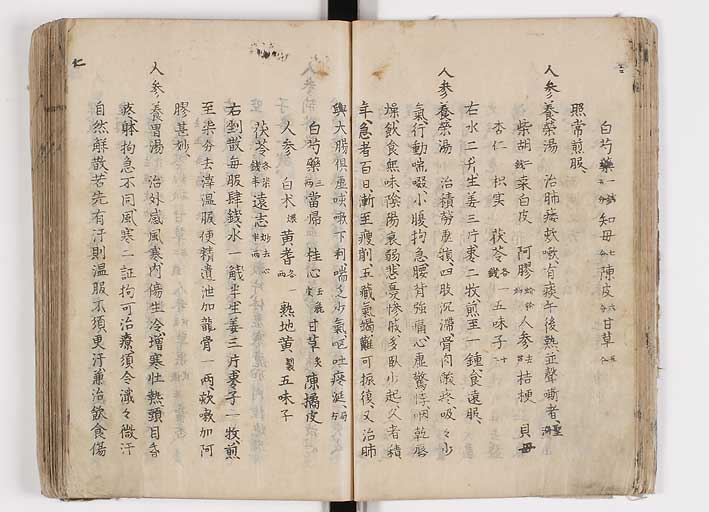 白芍藥 知母 陳皮 甘草
照常煎服
人參養榮湯 治肺痿欬嗽有痰午後熱並聲嘶者
柴胡 桑白皮 阿膠 人參 桔梗 貝母
杏仁 枳実 茯苓 五味子
右水二升生姜三片棗二牧煎至一鍾食遠服
人參養榮湯 治積勞虚損四肢沉滯骨肉酸疼吸々少
氣行動喘啜小腹拘急腰背強痛心虚驚悸咽乾唇
燥飲食無味陰陽衰弱悲憂惨戚多臥少起久者積
年急者百日漸至瘦削五臟氣竭難可振復又治肺
與大腸俱虚咳嗽下利喘乏少氣呕吐痰涎
白芍藥 當帰 桂心 甘草 陳橘皮
人參 白朮 黄耆 熟地黄 五味子
茯苓 遠志
右剉散每服肆錢水一盞半生姜三片棗子一牧煎
至柒分去滓温服便精遺泄加龍骨一兩欬嗽加阿
膠甚妙
人參養胃湯 治外感風寒内傷生冷増寒壮熱頭目昏
疼躰拘急不同風寒二証拘可治療須令濈々微汗
自然解散若先有汗則温服不須更汗兼治飲食傷